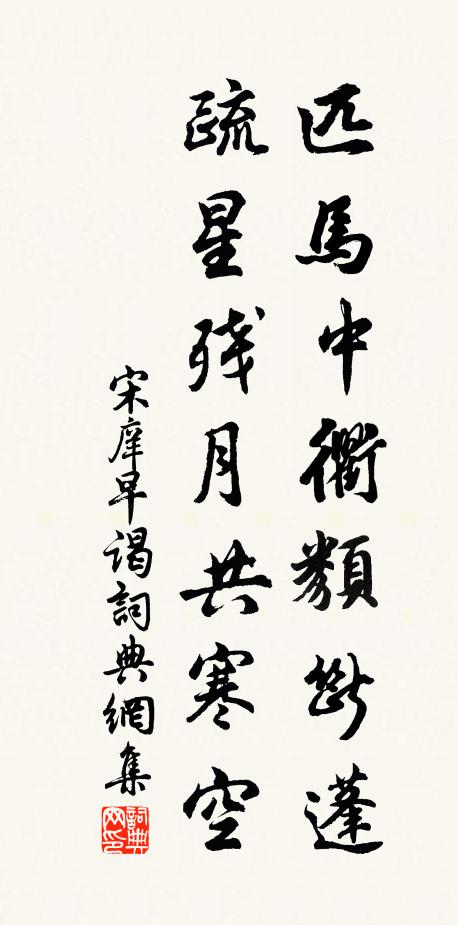 匹馬中衢類斷蓬
疏星残月共寒空
宋庠早謁詞典網集
詞典網印